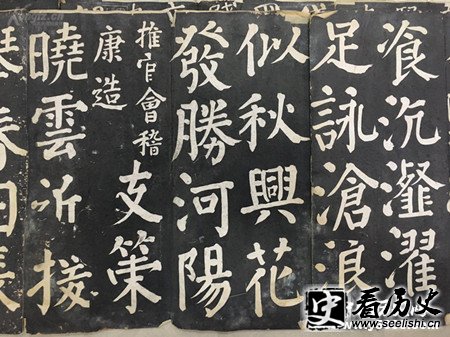 飡沆瀣濯
足詠滄浪
似秋興花
發勝河陽
推官會稽
康造
支策
曉雲近援
琴春日長
看历史
www.seelishi.cn